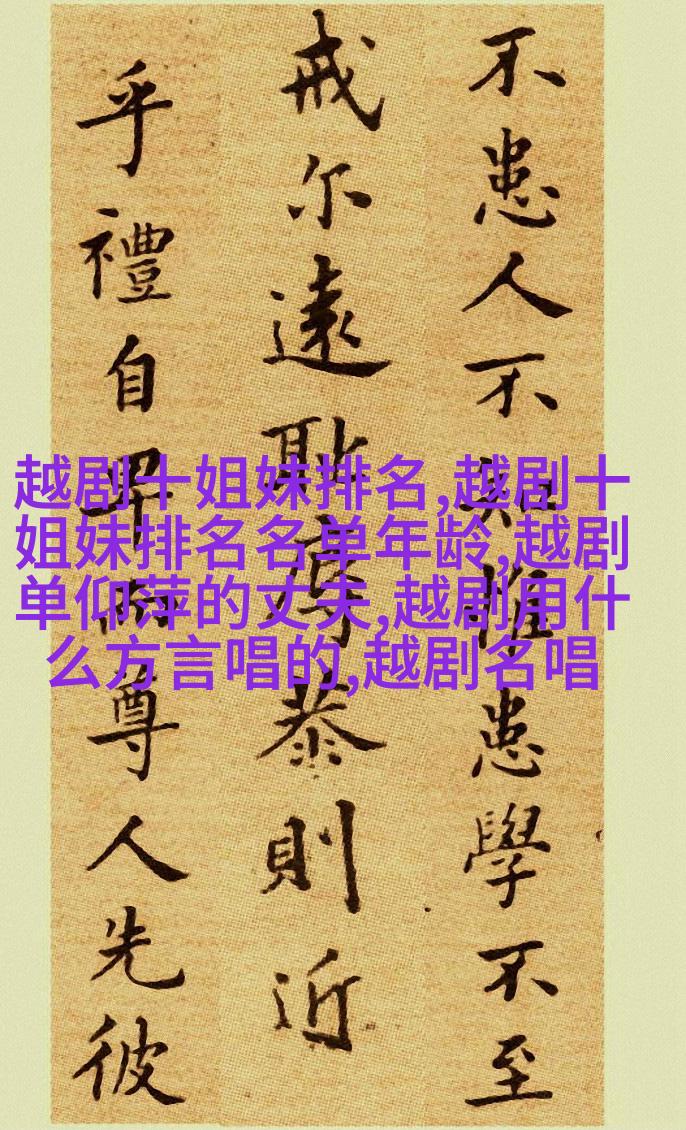 不患人不知惟患學不至
戒尔遠耻辱恭則近
乎禮自卑而尊人先彼
越剧十姐妹排名,越剧十
姐妹排名名单年龄,越剧
单仰萍的丈夫,越剧用什
么方言唱的,越剧名唱